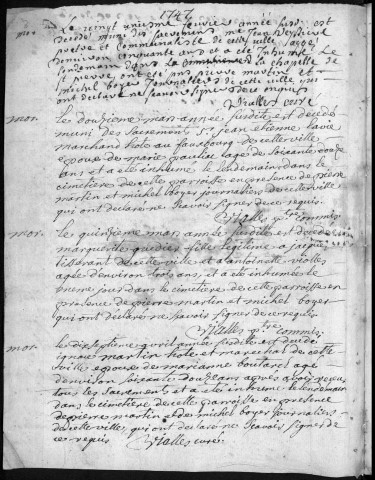 1747
mor. Le vingt unieme fevrier année susd. est
decedé muni des sacremens mr jean
pretre et communaliste de cette ville agé
denviron cinquante ans et a eté inhumé le
lendemain dans la chapelle de
st pierre, ont eté pns pierre martin et
michel boyer journaliers de cette ville qui
ont declaré ne scavoir signer de ce requis
Vialles curé
mor. le douzieme mars année susdite est decedé
muni des sacremens sr jean etienne
marchand hole au fauxbourg de cette ville
epoux de marie agé de soixante douze
ans et a eté inhumé le lendemain dans le
cimetiere de cette parroisse en presence de pierre
martin et michel boyer journaliers de cette ville
qui ont declaré ne scavoir signer de ce requis.
Vialles ptre commis
mor. le quinzieme mars année susdite est decedée
marguerite fille legitime a jaques
tisserant de cette ville et a antoinette vialles
agée denviron trois ans, et a eté inhumée le
meme jour dans le cimetiere de cette parroisse en
presence de pierre martin et michel boyer
qui ont declaré ne scavoir signer de ce requis
Vialles ptre commis
mor. le dix septieme avril année susdite est decedé
ignace martin hole et marechal de cette
ville epoux de marianne boutarel agé
denviron soixante douze ans après avoir reçeu
tous les sacremens et a eté inhumé le lendemain
dans le cimetiere de cette parroisse en presence
de pierre martin et de michel boyer journaliers
de cette ville, qui ont declaré ne scavoir signer de
ce requis Vialles curé